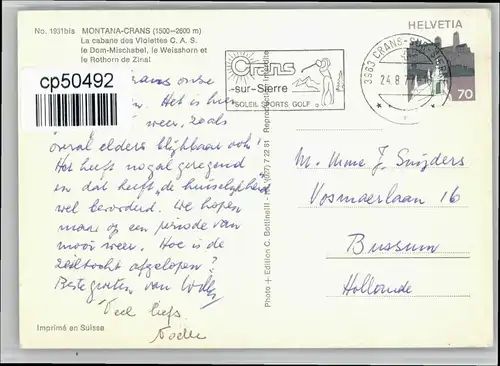 No. 1931bis MONTANA-CRANS (1500—2600 m)
La cabane des Violettes C. A. S.
le Dom-Mischabel, le Weisshorn et
le Rothorn de Zinal
cp50492
onze
Het is hier
weer, zoals
overal elders blijkbaar ook!
Het heeft nogal geregend
en dat heeft „de huiselijkheid"
wel bevorderd. We hopen
maar op een periode van
mooi weer. Hoe is de
zeiltocht afgelopen?
Beste groeten van
Veel liefs
Imprimé en Suisse
Photo + Edition C. Bottinelli - (027) 7 22 81 Reproduction interdite
Crans
-sur-Sierre
SOLEIL SPORTS GOLF
3963 CRANS-SUR-
24.8.7
HELVETIA
70
M. Mme J. Snijders
Vosmaerlaan 16
Bussum
Hollande